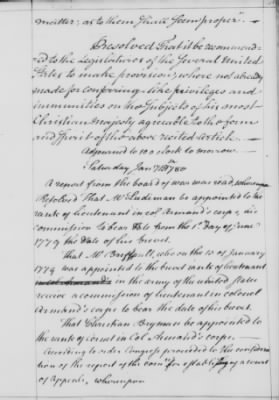 matter; as to them shall seem proper".
Resolved That it be recommend-
ed to the Legislatures of the several United
States to make provision, where not already
made for conferring like privileges and
immunities on the subjects of his most
Christian majesty agreeable to the form
and spirit of the above recited article.
Adjourned to 10 o Clock to morrow.
Saturday Jany 15th 1780
A report from the board of war was read, whereupon
Resolved That Mr Ludeman be appointed to the
rank of lieutenant in col Armand's corps, his
commission to bear date from the 1st day of June
1779 the date of his brevet.
That Mr who on the 10 of January
1778 was appointed to the brevet rank of lieutenant
in the army of the united states
receive a commission of lieutenant in colonel
Armand's corps to bear the date of his brevet.
That Christian Bryman be appointed to
the rank of cornet in Col Armand's corps.
According to order Congress proceeded to the consider
ation of the report of the comee for establishing a court
of Appeals, whereupon